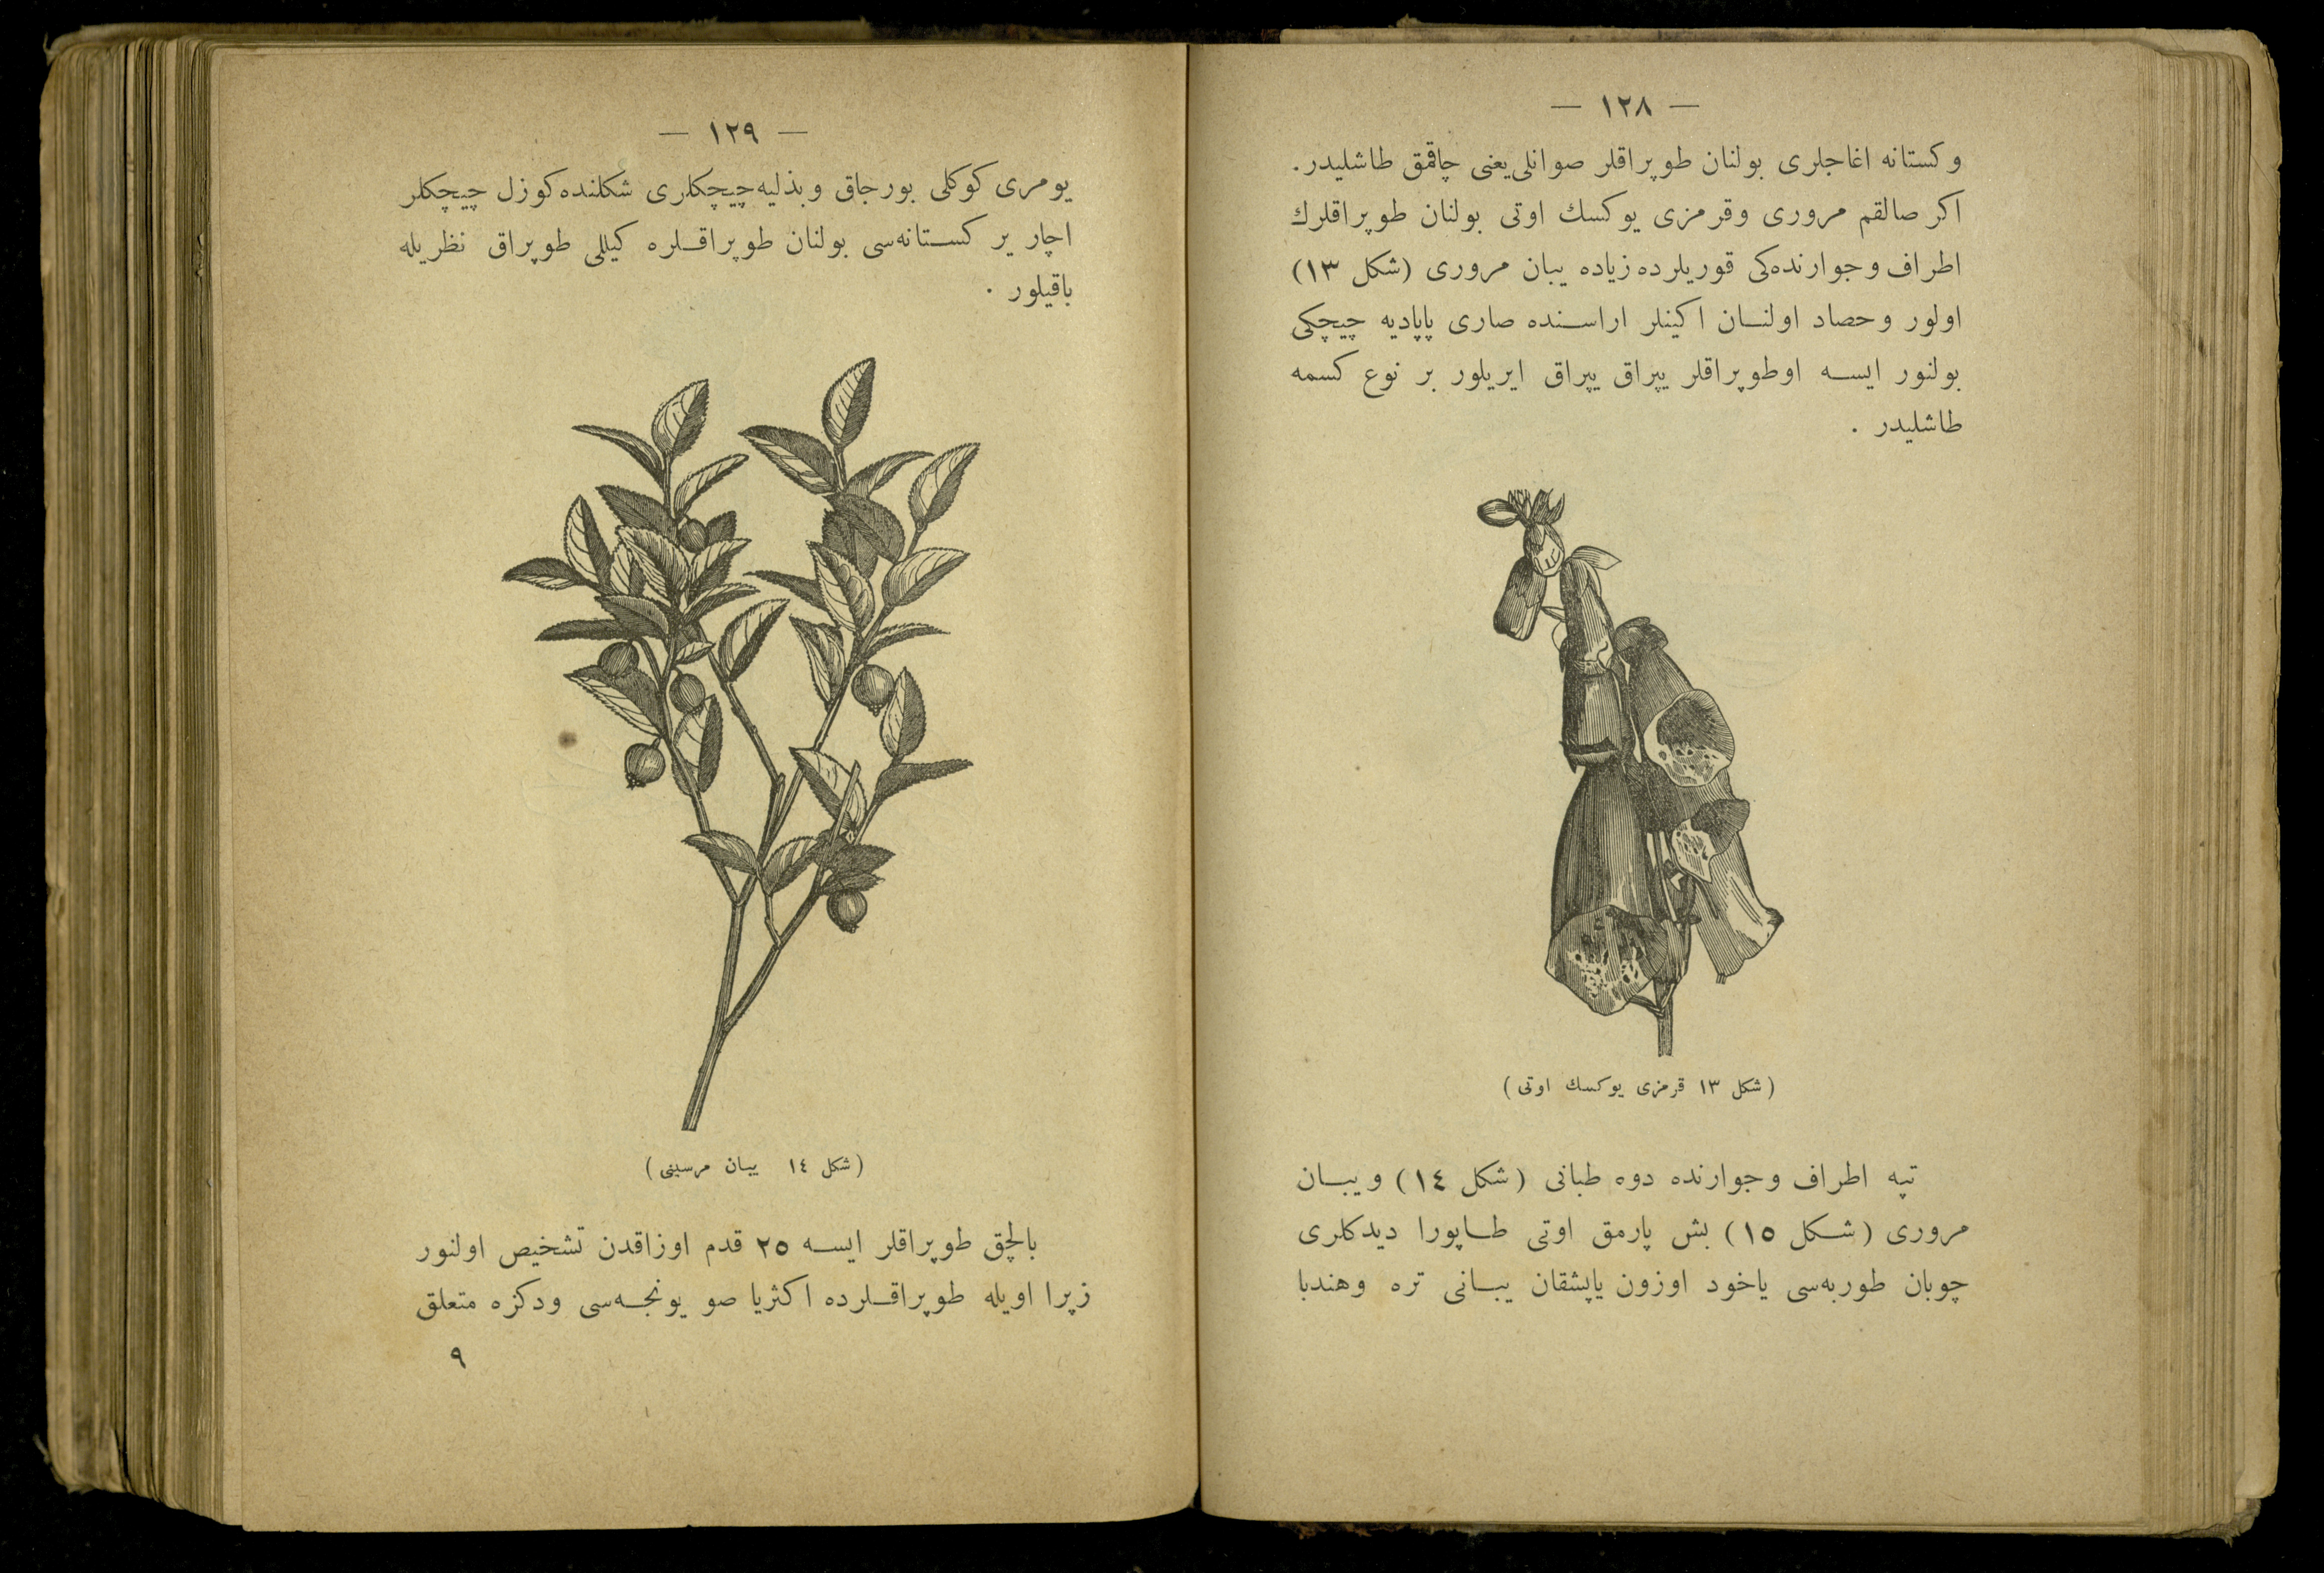 — ١٢٨ —
وكستانه اغاجلرى بولنان طوپراقلر صوانلى يعنى چاقمق طاشليدر.
اكر صالقم مرورى وقرمزى يوكسك اوتى بولنان طوپراقلرك
اطراف وجوارنده كى قوريلرده زياده يبان مرورى (شكل ١٣)
اولور وحصاد اولنان اكينلر اراسنده صارى پاپاديه چيچكى
بولنور ايسه اوطوپراقلر يپراق يپراق ايريلور بر نوع كسمه
طاشليدر .
(شكل ١٣ قرمزى يوكسك اوتى)
تپه اطراف وجوارنده دوه طبانى (شكل ١٤) ويبان
مرورى (شكل ١٥) بش پارمق اوتى طاپورا ديدكلرى
چوبان طوربه‌سى ياخود اوزون ياپشقان يبانى تره وهندبا
— ١٢٩ —
يومرى كوكلى بورجاق وبذليه چيچكلرى شكلنده كوزل چيچكلر
اچار ير كستانه‌سى بولنان طوپراقلره كيللى طوپراق نظريله
باقيلور .
(شكل ١٤ يبان مرسينى)
بالچق طوپراقلر ايسه ٢٥ قدم اوزاقدن تشخيص اولنور
زيرا اويله طوپراقلرده اكثريا صو يونجه‌سى ودكزه متعلق
٩